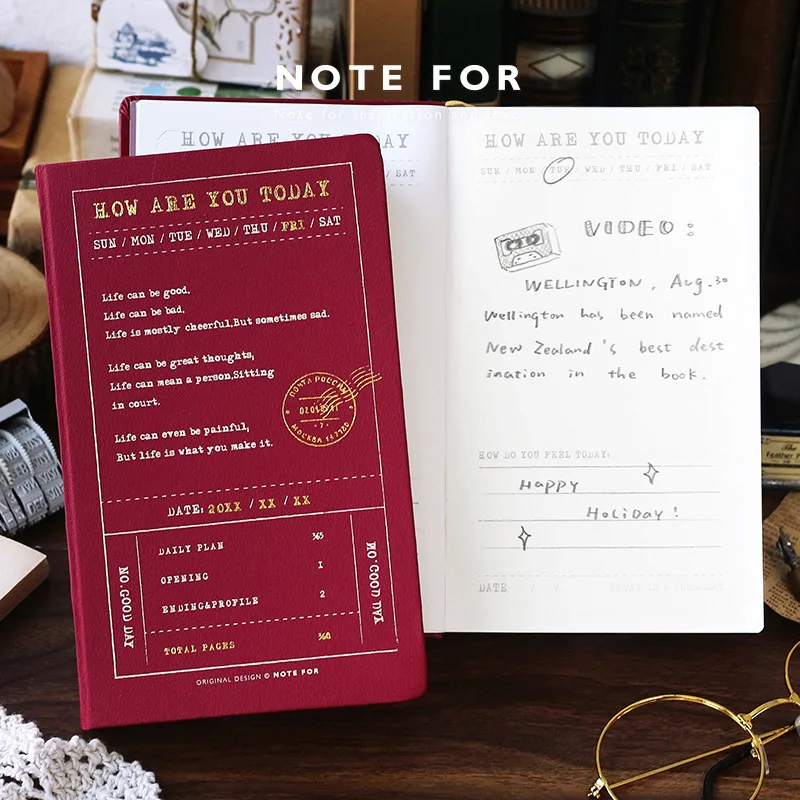 NOTE FOR
Note for inspiration and love
HOW ARE YOU TODAY
SUN / MON / TUE / WED / THU / FRI / SAT
Life can be good,
Life can be bad,
Life is mostly cheerful,But sometimes sad.
Life can be great thoughts,
Life can mean a person,Sitting
in court.
Life can even be painful,
But life is what you make it.
ПОЧТА РОССИИ
МОСКВА
DATE: 20XX / XX / XX
DAILY PLAN 365
OPENING 1
ENDING&PROFILE 2
TOTAL PAGES 368
NO.GOOD DAY
NO.GOOD DAY
ORIGINAL DESIGN © NOTE FOR
HOW ARE YOU TODAY
/ SAT
HOW ARE YOU TODAY
SUN / MON / TUE / WED / THU / FRI / SAT
VIDEO:
WELLINGTON, Aug.30
Wellington has been named
New Zealand's best dest
ination in the book.
HOW DO YOU FEEL TODAY:
Happy
Holiday!
DATE: / /
TODAY IS A GOOD DAY
The